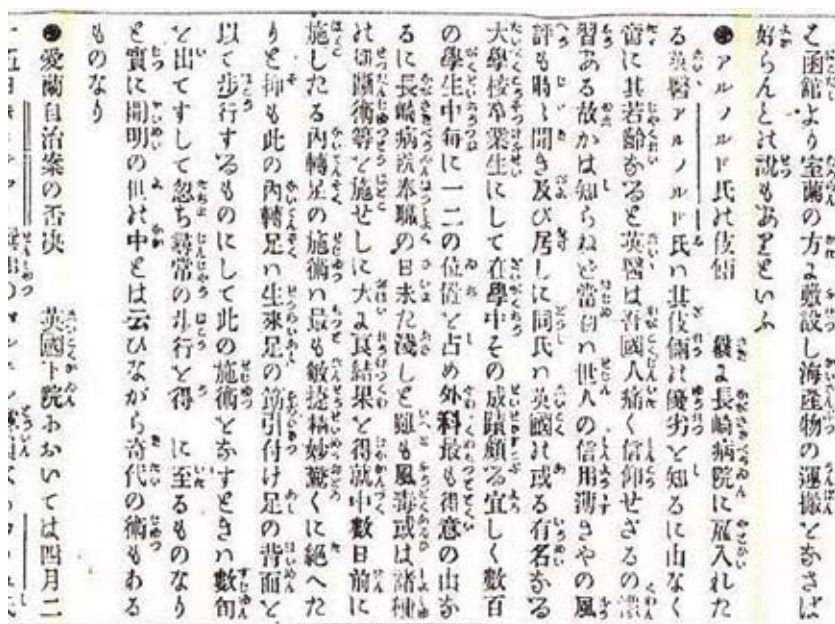 と函館より室蘭の方よ敷設し海産物の運搬となさば
好らんとは説もありといふ
●アルノルド氏は伎倆　曩よ長崎病院に雇入れた
る英醫アルノルド氏ハ其伎倆は優劣と知るに由なく
當に其若齡なると英醫は吾國人痛く信仰せざるの
習ある故かは知らねど當初ハ世人の信用薄きやの風
評も時々聞き及び居しに同氏ハ英國は或る有名なる
大學校卒業生にして在學中その成蹟頗る宜しく數百
の學生中毎に一二の位置と占め外科最も得意の由な
るに長崎病院奉職の日未た淺しと雖も風毒或は諸種
は切斷術等と施せしに大よ良結果と得就中數日前に
施したる內轉足の施術ハ最も敏捷精妙驚くに絕へた
りと抑も此の內轉足ハ生來足の筋引付け足の背面と
以て步行するものにして此の施術となすときハ數旬
と出てすして忽ち尋常の步行と得　に至るものなり
と實に開明の世は中とは云ひながら奇代の術もある
ものなり
●愛蘭自治案の否決　英國下院においては四月二